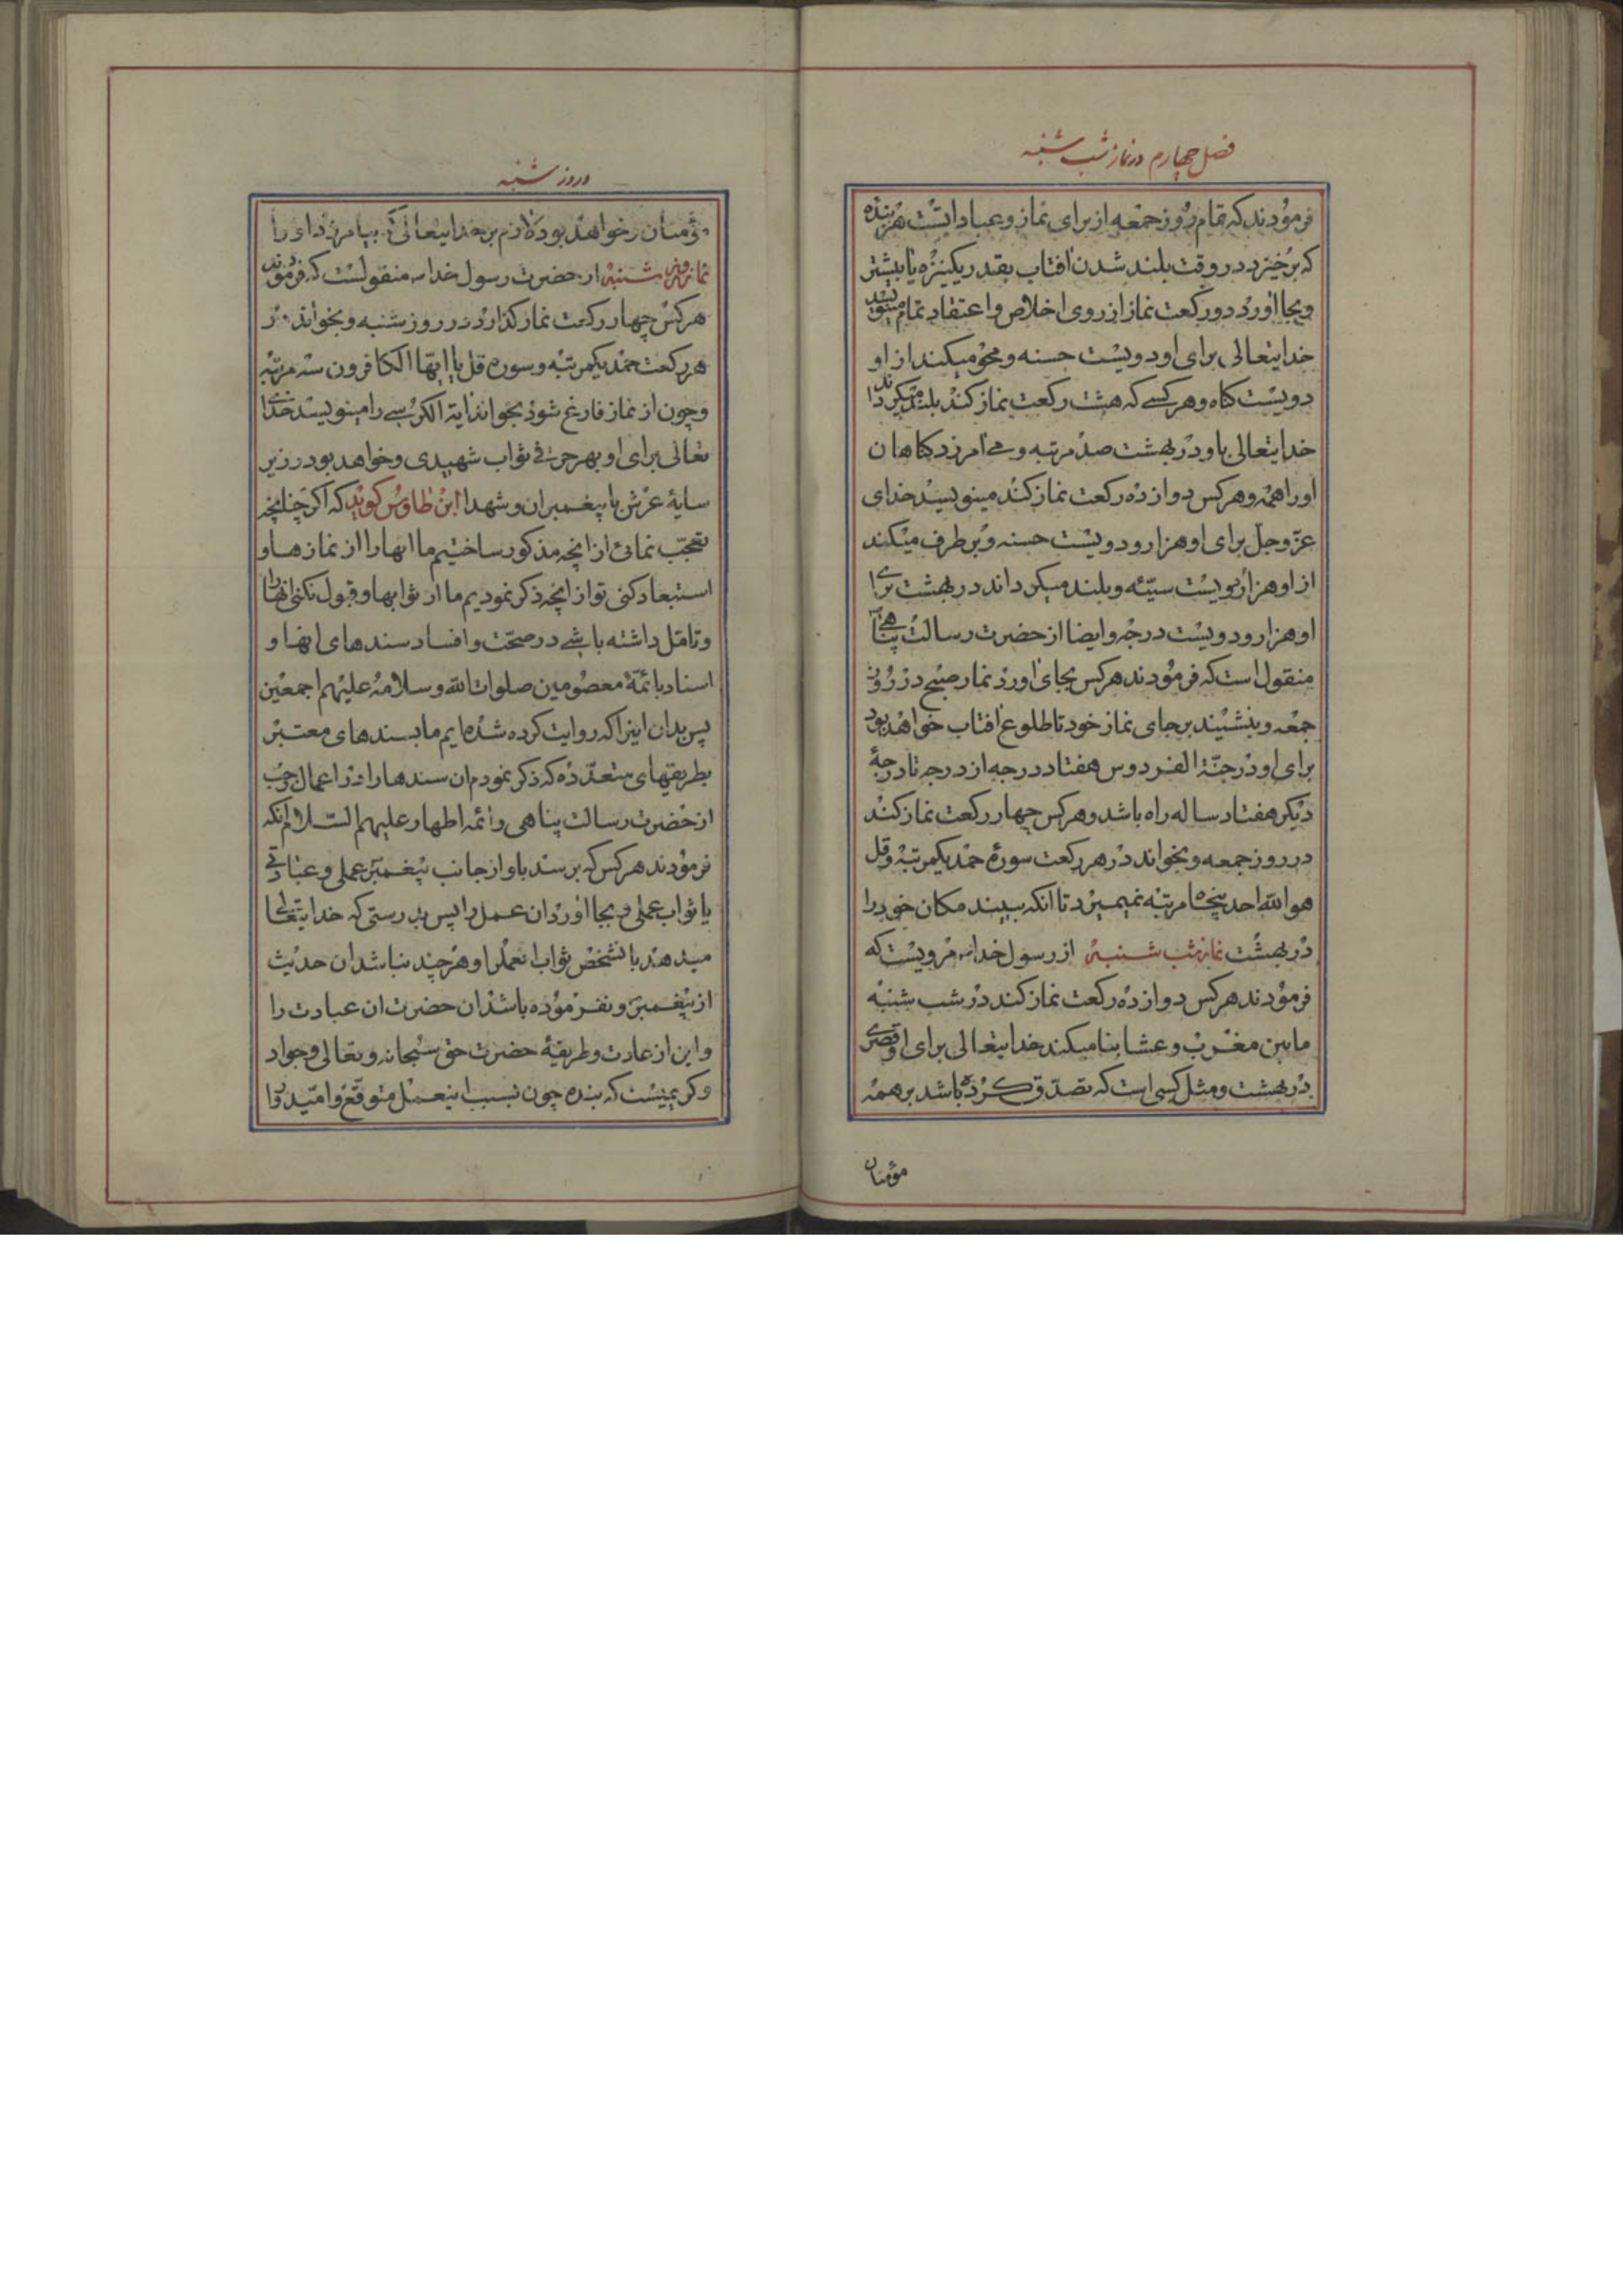 فصل چهارم در نماز شب شنبه
فرمودند که تمام روز جمعه از برای نماز و عباداتست هر بنده
که برخیزد در وقت بلند شدن افتاب بقدر یکنیزه یا بیشتر
و بجا اورد دو رکعت نماز از روی اخلاص و اعتقاد تمام مینویسد
خدایتعالی برای او دویست حسنه و محو میکند از او
دویست کناه و هر کسے که هشت رکعت نماز کند بلند میکرداند
خدایتعالی باو در بهشت صد مرتبه و مے امرزد کناهان
او را همه و هر کس دوازده رکعت نماز کند مینویسد خدای
عزّ و جل برای او هزار و دویست حسنه و بر طرف میکند
از او هزار و دویست سیّئه و بلند میکرداند در بهشت برای
او هزار و دویست درجه و ایضا از حضرت رسالت پناهے
منقول است که فرمودند هر کس بجای اورد نماز صبح در روز
جمعه و بنشیند بر جای نماز خود تا طلوع افتاب خواهد بود
برای او در جنّة الفردوس هفتاد درجه از درجه تا درجهٔ
دیکر هفتاد ساله راه باشد و هر کس چهار رکعت نماز کند
در روز جمعه و بخواند در هر رکعت سورهٔ حمد یکمرتبه و قل
هو الله احد پنجاه مرتبه نمیمیرد تا انکه ببیند مکان خود را
در بهشت نماز شب شنبه از رسول خدا مرویست که
فرمودند هر کس دوازده رکعت نماز کند در شب شنبه
مابین مغرب و عشا بنا میکند خدایتعالی برای او قصری
در بهشت و مثل کسی است که تصدّق کرده باشد بر همه
مؤمنان
در روز شنبه
مؤمنان و خواهد بود لازم بر خدایتعالی که بیامرزد او را
نماز روز شنبه از حضرت رسول خدا منقولست که فرمودند
هر کس چهار رکعت نماز کذارد در روز شنبه و بخواند در
هر رکعت حمد یکمرتبه و سوره قل یا ایّها الکافرون سه مرتبه
و چون از نماز فارغ شود بخواند ایة الکرسے را مینویسد خدای
تعالی برای او بهر حرفے ثواب شهیدی و خواهد بود در زیر
سایهٔ عرش با پیغمبران و شهدا ابن طاوس کوید که اکر چنانچه
تعجّب نمائی از انچه مذکور ساختیم ما انها را از نمازها و
استبعاد کنی تو از انچه ذکر نمودیم ما از ثوابها و قبول نکنی انها را
و تامّل داشته باشے در صحّت و افساد سندهای انها و
اسناد بائمّهٔ معصومین صلوات الله و سلامه علیهم اجمعین
پس بدان اینرا که روایت کرده شده ایم ما بسندهای معتبر
بطریقهای متعدّده که ذکر نمودم ان سندها را در اعمال رجب
از حضرت رسالت پناهی و ائمه اطهار علیهم السّلام انکه
فرمودند هر کس که برسد باو از جانب پیغمبر عملی و عبادتی
یا ثواب عملی و بجا اورد ان عمل را پس بدرستی که خدایتعالی
میدهد بانشخص ثواب انعمل را و هر چند نباشد ان حدیث
از پیغمبر و نفرموده باشد ان حضرت ان عبادت را
و این از عادت و طریقهٔ حضرت حق سبحانه و تعالی و جواد
و کریمیست که بنده چون بسبب اینعمل متوقّع و امّیدوار